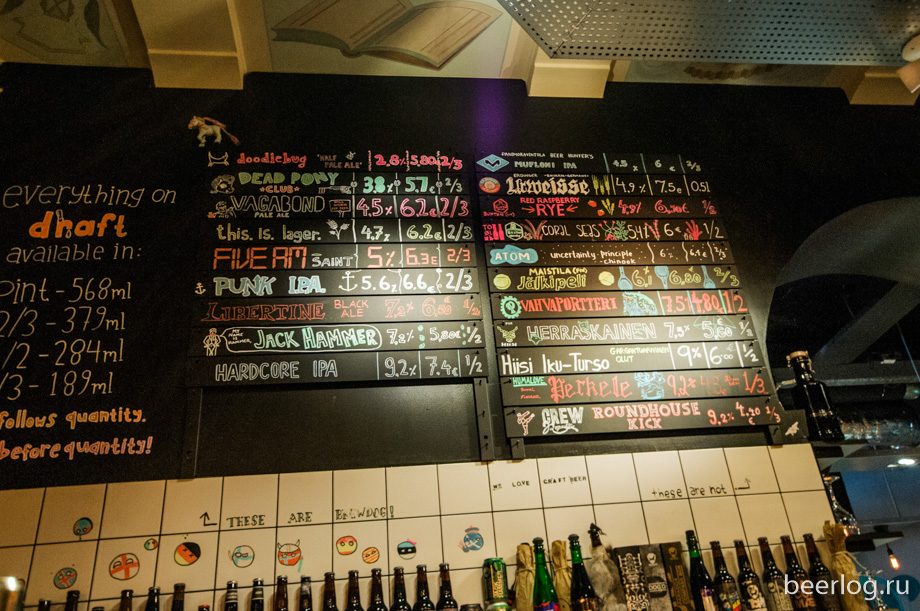 everything on
draft
available in:
Pint - 568ml
2/3 - 379ml
1/2 - 284ml
1/3 - 189ml
follows quantity.
before quantity!
doodlebug "HALF PALE ALE" 2,8% 5,80 2/3
DEAD PONY CLUB 3.8% 5.7€ 2/3
VAGABOND PALE ALE 4.5% 6.2€ 2/3
this. is. lager. 4.7% 6.2€ 2/3
FIVE AM SAINT 5% 6.3€ 2/3
PUNK IPA 5.6% 6.6€ 2/3
LIBERTINE BLACK ALE 1/2
JACK HAMMER 5,80€ 1/2
HARDCORE IPA 9.2% 7.4€ 1/2
BEER HUNTER'S
MUFLONI IPA 4.5% 6€ 2/3
Urweisse 4.9% 7.5€ 0.5l
RED RASPBERRY
RYE
CORAL SEAS 1/2
ATOM uncertainty principle
MAISTILA
Jälkipeli 6% 6,80 2/3
VAHVAPORTTERI 7.5% 4.80 1/2
HERRASKAINEN 1/2
Hiisi Iku-Turso 9% 6.00 1/2
HUMALOVE
Perkele 9,2% 1/3
CREW ROUNDHOUSE
KICK 9,2% 4,20€ 1/3
WE LOVE CRAFT BEER
these are not
THESE ARE BREWDOG!
beerlog.ru